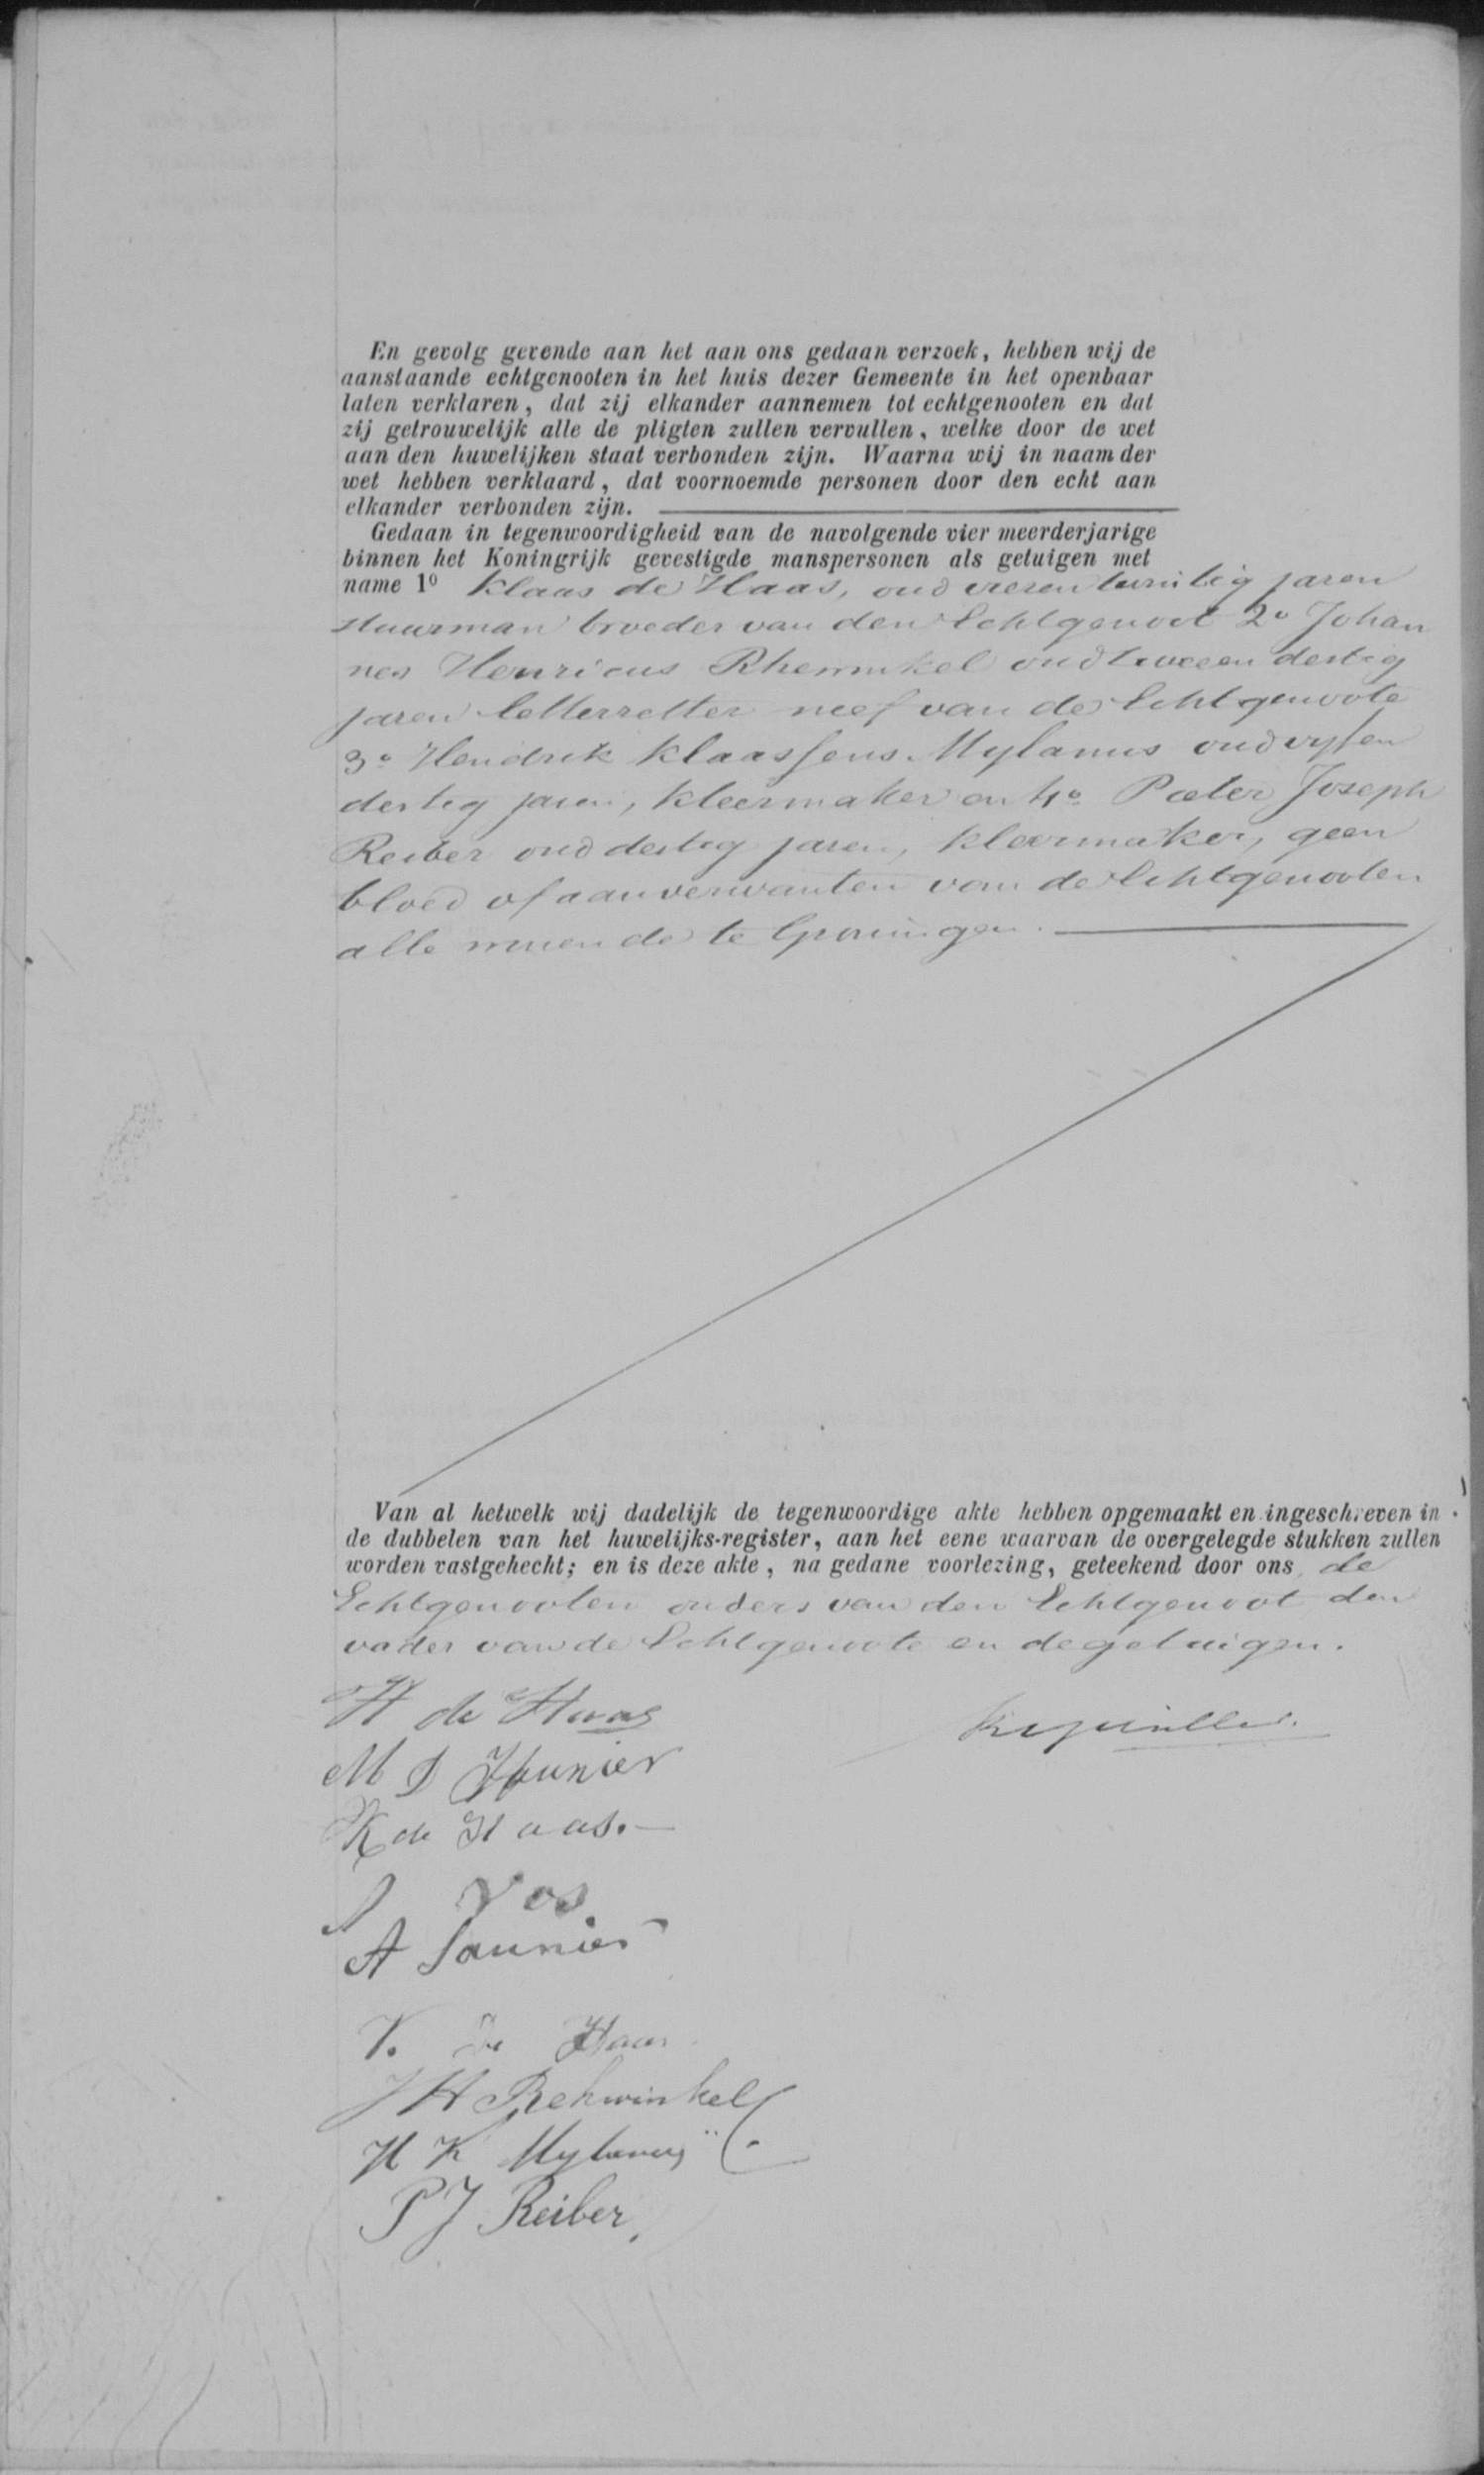 En gevolg gevende aan het aan ons gedaan verzoek, hebben wij de
aanstaande echtgenooten in het huis dezer Gemeente in het openbaar
laten verklaren, dat zij elkander aannemen tot echtgenooten en dat
zij getrouwelijk alle de pligten zullen vervullen, welke door de wet
aan den huwelijken staat verbonden zijn. Waarna wij in naam der
wet hebben verklaard, dat voornoemde personen door den echt aan
elkander verbonden zijn.
Gedaan in tegenwoordigheid van de navolgende vier meerderjarige
binnen het Koningrijk gevestigde manspersonen als getuigen met
name 1º Klaas de Haas, oud vierentwintig jaren
stuurman broeder van den Echtgenoot 2º Johan
nes Henricus Rhenwinkel oud tweeendertig
jaren letterzetter neef van de Echtgenoote
3º Hendrik Klaassens Mylanus oud vyfen
dertig jaren, kleermaker en 4º Pieter Joseph
Reiber oud dertig jaren, kleermaker, geen
bloed of aanverwanten van de Echtgenooten
alle wonende te Groningen.
Van al hetwelk wij dadelijk de tegenwoordige akte hebben opgemaakt en ingeschreven in
de dubbelen van het huwelijks-register, aan het eene waarvan de overgelegde stukken zullen
worden vastgehecht; en is deze akte, na gedane voorlezing, geteekend door ons, de
Echtgenooten ouders van den Echtgenoot den
vader van de Echtgenoote en de getuigen.
H de Haas
M S Saunier
K de Haas.
Vos
A Saunier
K. de Haas
J H Rehwinkel
H K Mylanus
P J Reiber